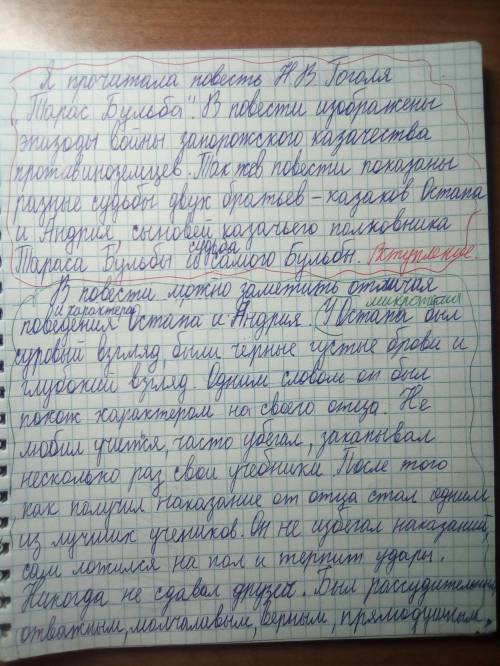 Я прочитала повесть Н.В. Гоголя
"Тарас Бульба". В повести изображены
эпизоды войны запорожского казачества
против иноземцев. Также в повести показаны
разные судьбы двух братьев – казаков Остапа
и Андрия, сыновей казачьего полковника
судьба
Тараса Бульбы и самого Бульбы. Вступление.
В повести можно заметить отличия
и характера микротемия
поведения Остапа и Андрия. У Остапа был
суровый взгляд, были чёрные густые брови и
глубокий взгляд. Одним словом он был
похож характером на своего отца. Не
любил учится, часто убегал, закапывал
несколько раз свои учебники. После того
как получил наказание от отца стал одним
из лучших учеников. Он не избегал наказаний,
сам ложился на пол и терпит удары.
Никогда не сдавал друзей. Был рассудительным,
отважным, молчаливым, верным, прямодушным.